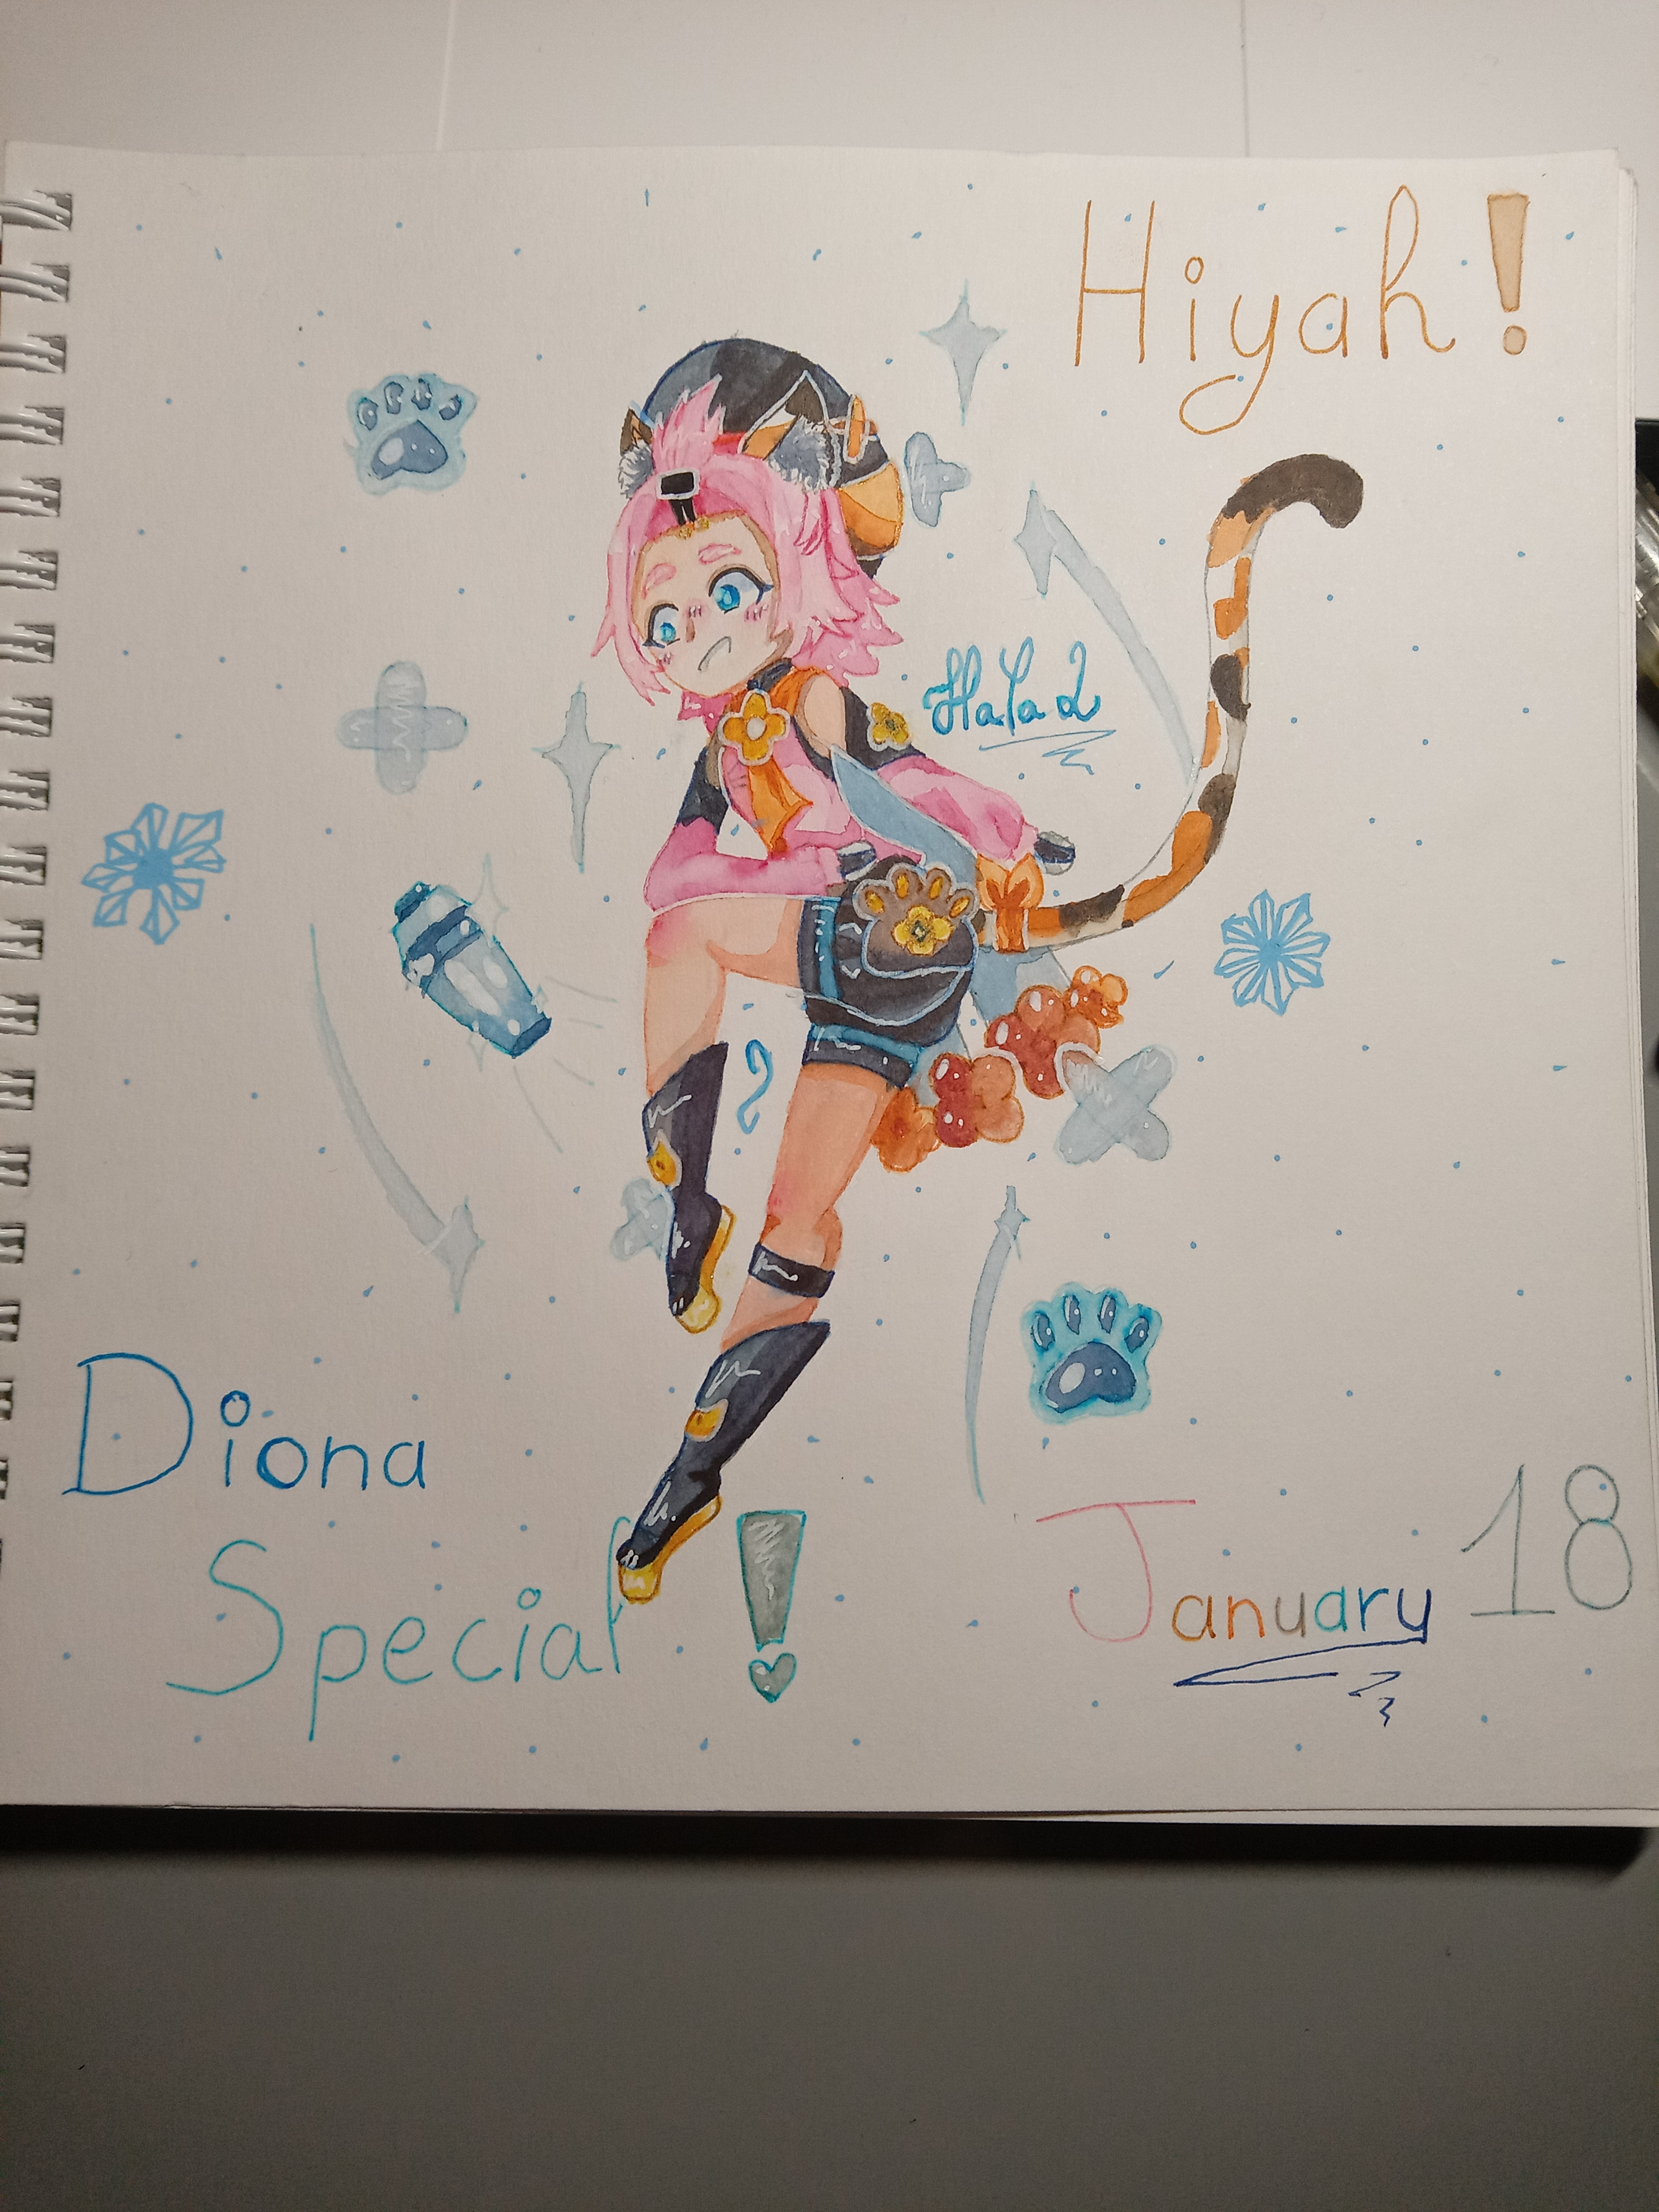 Hiyah!
HaYa2
Diona
Special!
January 18